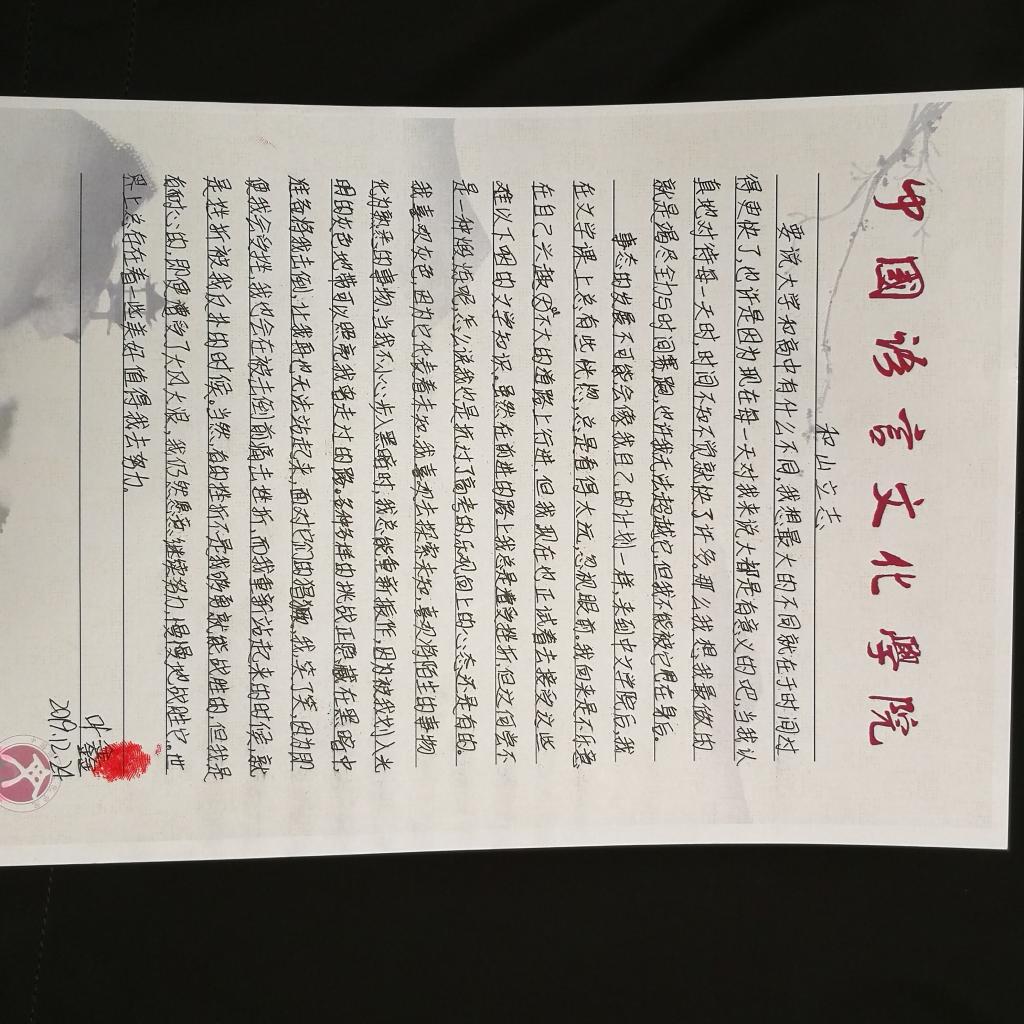 中國語言文化學院
和山立志
要说大学和高中有什么不同,我想最大的不同就在于时间对
得更快了,也许是因为现在每一天对我来说大都是有意义的吧,当我认
真地对待每一天时,时间不知不觉就快了许多。那么我想,我最做的
就是竭尽全力与时间赛跑,也许我无法超越它,但我不能被它甩在身后。
事态的发展不可能会像我自己的计划一样,来到中文学院后,我
在文学课上总有些恍惚,总是看得太远,忽视眼前。我向来是不乐意
在自己兴趣不大的道路上行进,但我现在也正试着去接受这些
难以下咽的文学知识。虽然在前进的路上我总是遭受挫折,但这何尝不
是一种锻炼呢,怎么说我也是抗过了高考的,乐观向上的心态还是有的。
我喜欢灰色,因为它代表着未知,我喜欢去探索未知,喜欢将陌生的事物
化为熟悉的事物,当我不小心步入黑暗时,我总能重新振作,因为被我划入光
明的灰色地带可以照亮我曾走过的路。各种各样的挑战正隐藏在黑暗中
准备将我击倒,让我再也无法站起来,面对它们的猖獗,我笑了笑,因为即
便我会受挫,我也会在被击倒前痛击挫折,而我重新站起来的时候,就
是挫折被我反扑的时候。当然,有的挫折不是我够勇就能战胜的,但我是
有耐心的,即便遭受了大风大浪,我仍然愿意继续努力,慢慢地战胜它。世
界上总存在着一些美好,值得我去努力。
叶鑫
2019.12.24